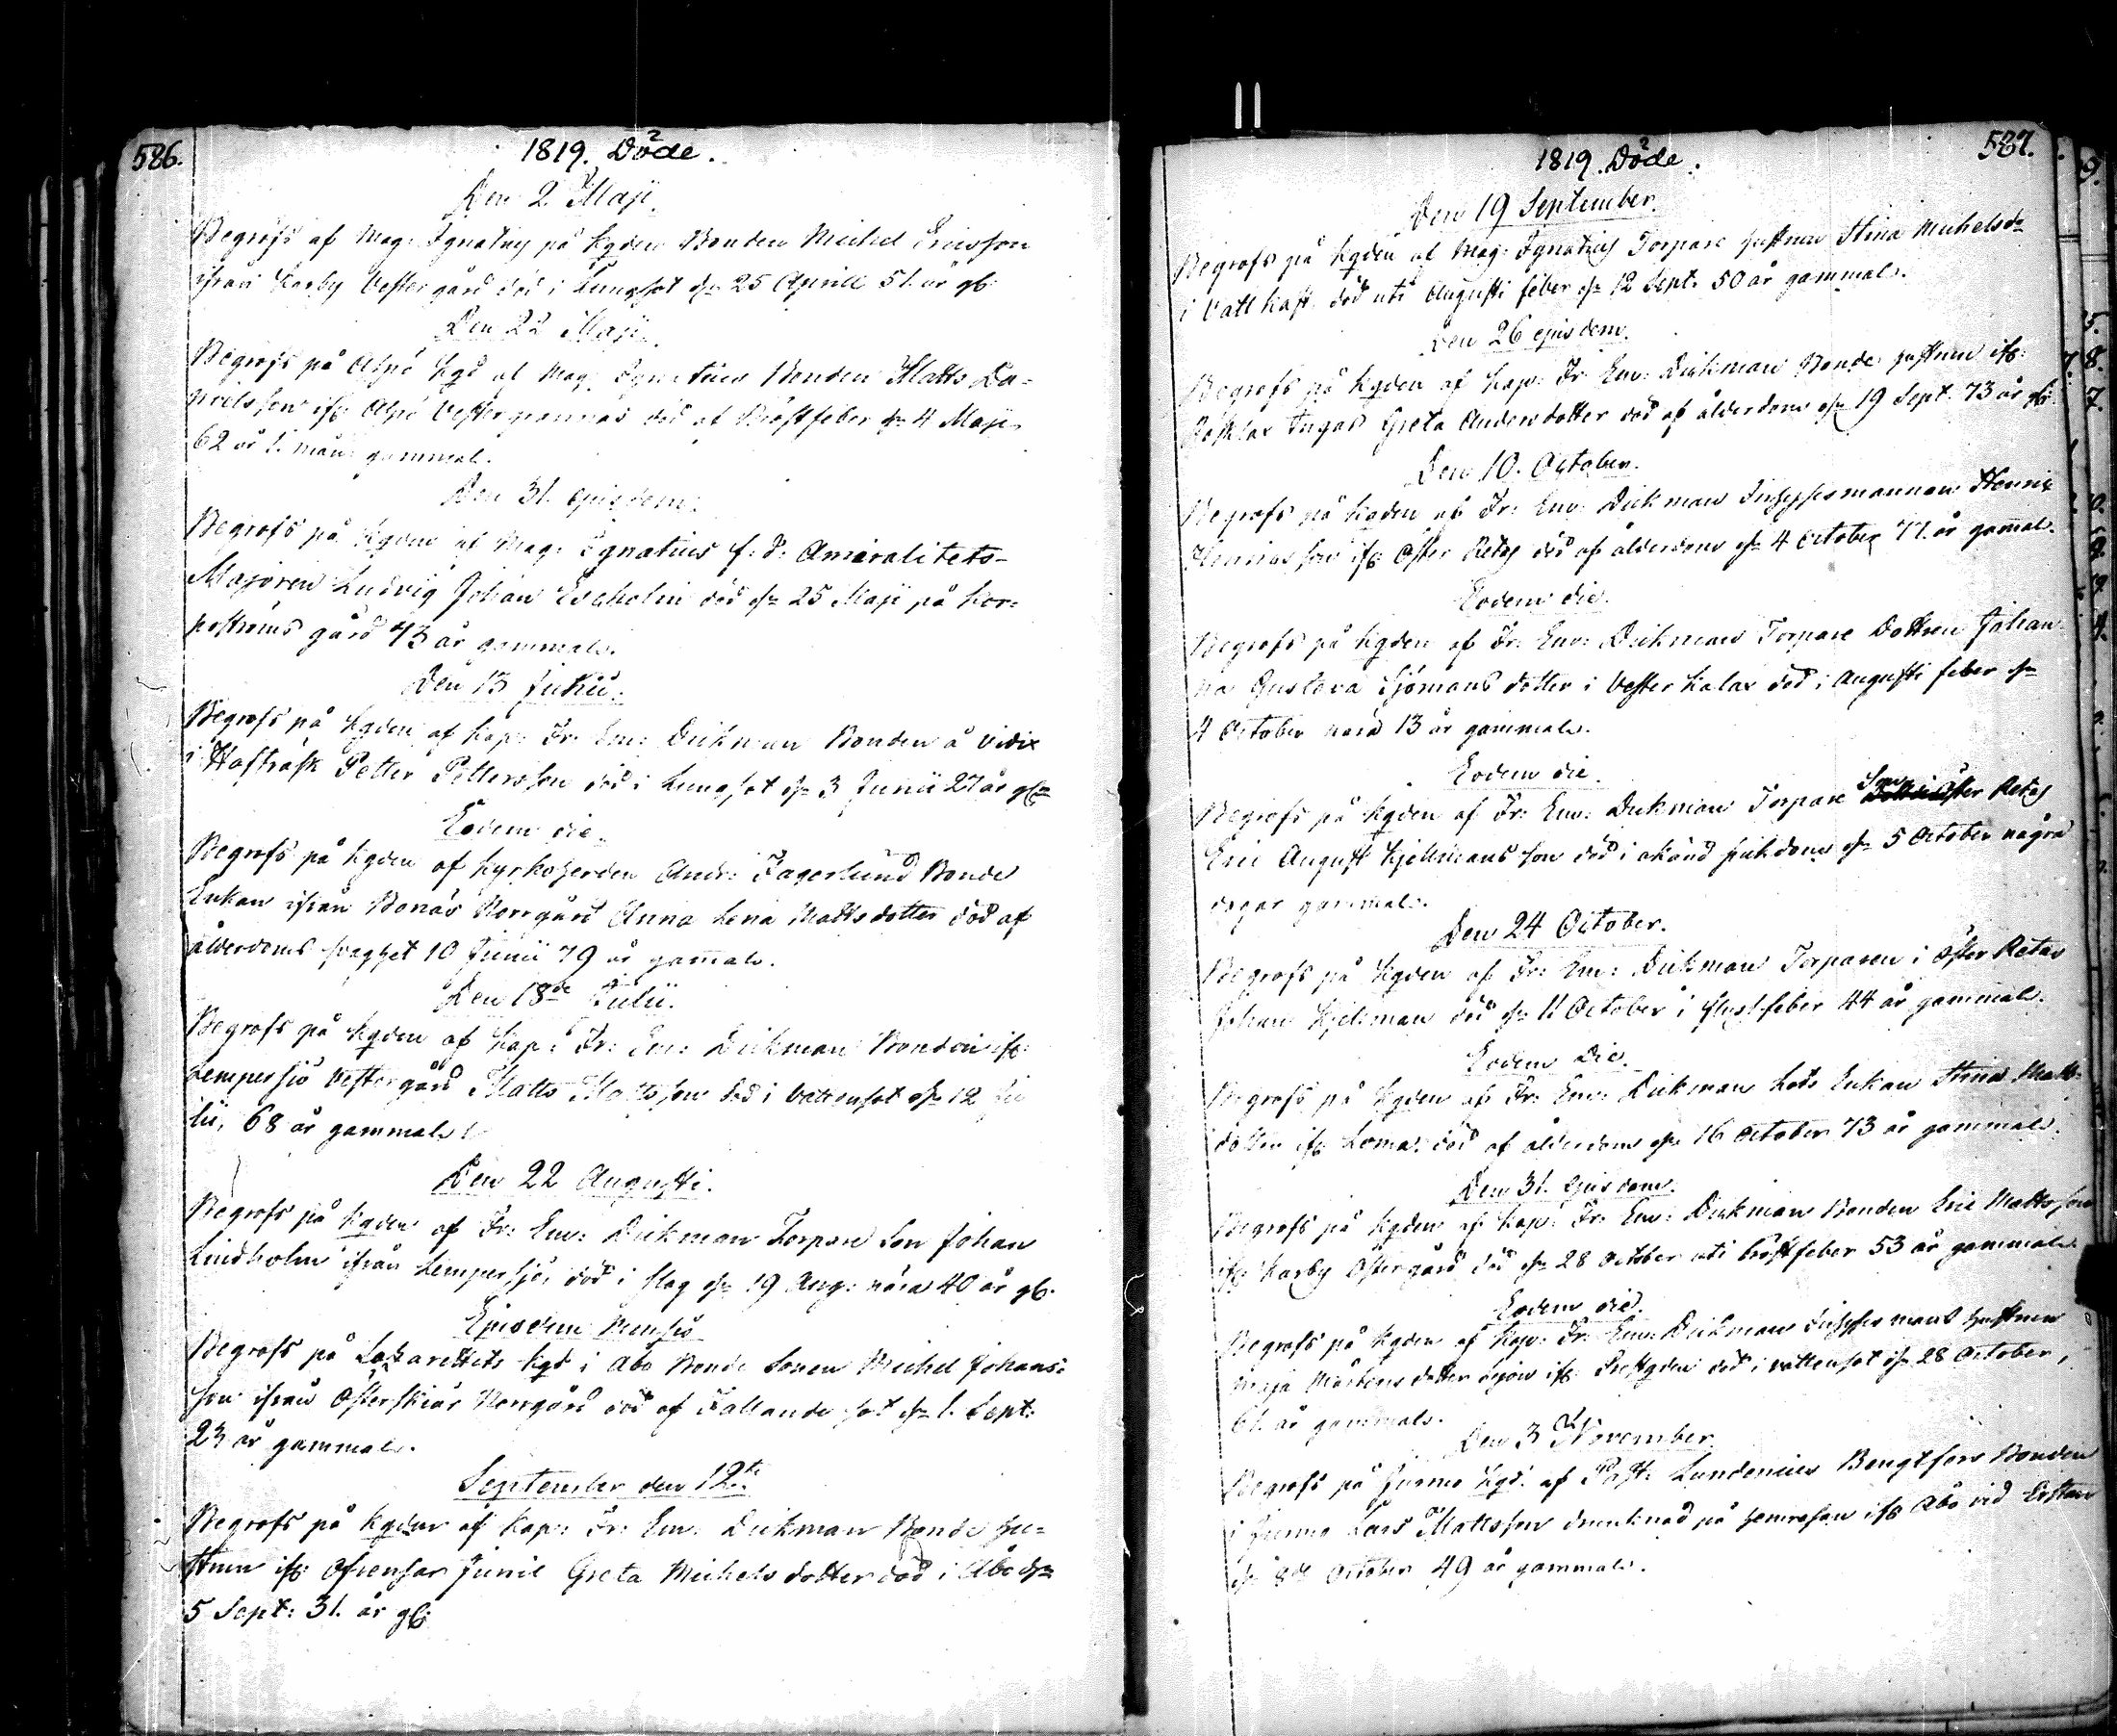 586.
1819. Döde.
Den 2. Maji.
Begrofs af Mag: Ignatius på Kgden Bonden Michel Ericsson
ifrån Karby Vestergård död i Lungsot d. 25 Aprill 51. år gl:
Den 22 Maji.
Begrofs på Alpe Kgd af Mag: Ignatius Bonden Matts Da-
nielsson ifr: Alpe Vestergannas död af Bröstfeber d. 4 Maji
62 år 1. mån: gammal.
Den 31. ejusdem.
Begrofs på Kgden af Mag: Ignatius f.d. Amiralitets-
Majoren Ludvig Johan Escholin död d. 25 Maji på Kor-
postroms gård 73 år gammal.
Den 13 Junii.
Begrofs på Kgden af Kap: Fr: Em: Dickman Bonden å Vidix
i Haftråsk Petter Pettersson död i Lungsot d. 3 Junii 27 år gl:
Eodem die.
Begrofs på Kgden af Kyrkoherden Andr: Fagerlund Bonde
Enkan ifrån Bonäs Norrgård Anna Lena Mattsdotter död af
ålderdoms svaghet 10 Junii 79 år gamal.
Den 18de Julii.
Begrofs på Kgden af Kap: Fr: Em: Dickman Bonden ifr:
Lempersjö Vestergård Matts Mattsson död i Vattensot d. 12 Ju
lii, 68 år gammal.
Den 22 Augusti.
Begrofs på Kgden af Fr: Em: Dickman Torpare Son Johan
Lindholm ifrån Lempersjö, död i slag d. 19 Aug: nära 40 år gl.
Ejusdem Mensis
Begrofs på Lazarettets Kgd i Åbo Bonde Sonen Michel Johans-
son ifrån Österskiär Norrgård död af Fallande sot d. 1. Sept:
23 år gammal.
September den 12te.
Begrofs på Kgden af Kap: Fr: Em: Dickman Bonde hu-
strun ifr: Ofvensar Junil Greta Michelsdotter död i Åbo d.
5 Sept: 31. år gl:
587.
1819. Döde.
Den 19 September.
Begrofs på Kgden af Mag: Ignatius Torpare hustrun Stina Michelsdr
i Vattkast död uti Augusti feber d. 12 Sept: 50 år gammal.
Den 26 ejusdem.
Begrofs på Kgden af Kap: Fr: Em: Dickman Bonde hustrun ifr:
Rosklax Ingas Greta Andersdotter död af ålderdom d. 19 Sept. 73 år gl:
Den 10. October.
Begrofs på Kgden af Fr: Em: Dickman Inhysesmannen Henric
Henricsson ifr: Öster Retais död af ålderdom d. 4 October 77. år gamal.
Eodem die.
Begrofs på Kgden af Fr: Em: Dickman Torpare Dottren Johan-
na Gustava Sjömans dotter i Vester Kalax död i Augusti feber d.
4 October nära 13 år gammal.
Eodem die.
Begrofs på Kgden af Fr: Em: Dickman Torpare Son Öster Retais
Eric August Hjelmans son död i okänd sjukdom d. 5 October några
dagar gammal.
Den 24 October.
Begrofs på Kgden af Fr: Em: Dickman Torparen i Öster Retais
Johan Hjelman död d. 11 October i fluss feber 44 år gammal.
Eodem Die.
Begrofs på Kgden af Fr: Em: Dickman Lots Enkan Stina Matts-
dotter ifr: Loma. död af ålderdom d. 16 October 73 år gammal.
Den 31. ejusdem.
Begrofs på Kgden af Kap: Fr: Em: Dickman Bonden Eric Mattsson
ifr: Karby Östergård död d. 28 October uti Bröstfeber 53 år gammal.
Eodem die.
Begrofs på Kgden af Kap: Fr: Em: Dickman Inhyses mans hustrun
Maja Mårtensdotter ifr: död i vattensot d. 28 October,
61. år gammal.
Den 3 November
Begrofs på Jurmo Kgd: af Past: Lundenius Bengtsson Bonden
i Jurmo Lars Mattsson drunknad på hemresan ifr: Åbo vid Erstan
d. 8de October 49 år gammal.